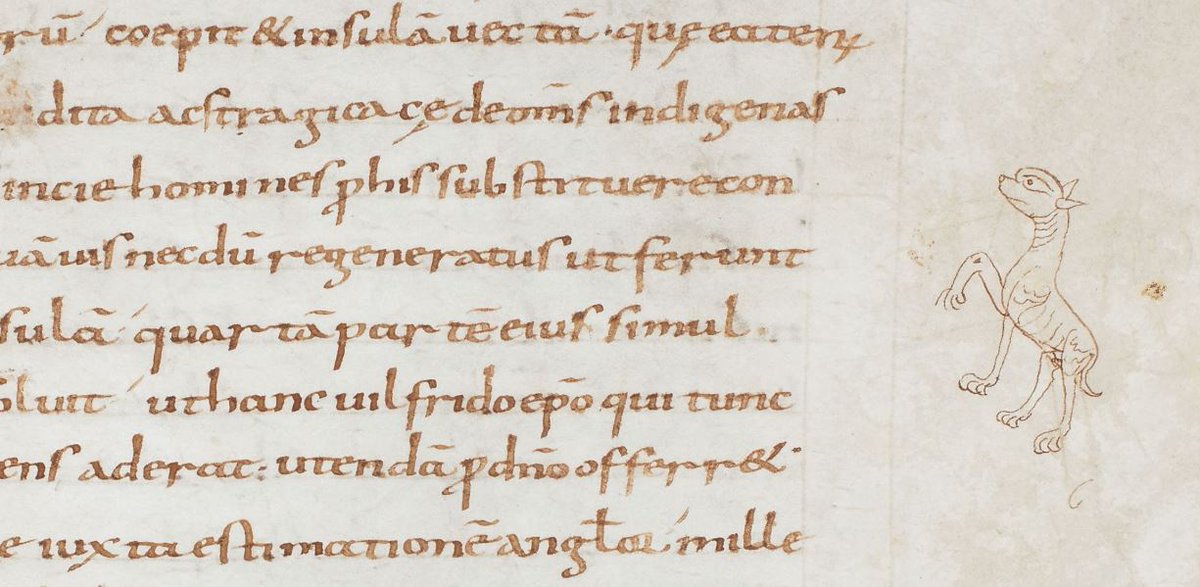 rū coepit & insulā uectā · quę eatenꝰ
dita acstragica cęde om̄s indigenas
incie homines ꝓ his substituere con
uā uis necdū regeneratus ut ferunt
sulā quartā partē eius simul
oluit ut hanc uilfrido ep̄o qui tunc
ens aderat: utendā ꝓ dn̄o offerr&
e iuxta estimationē angloꝝ mille